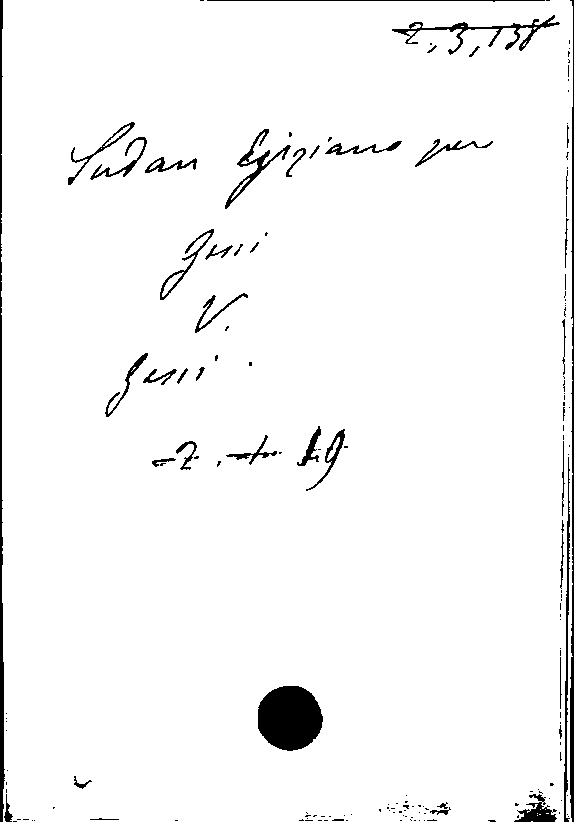 2, 3, 138
Sudan Egiziano per
Gessi
V.
Gessi.